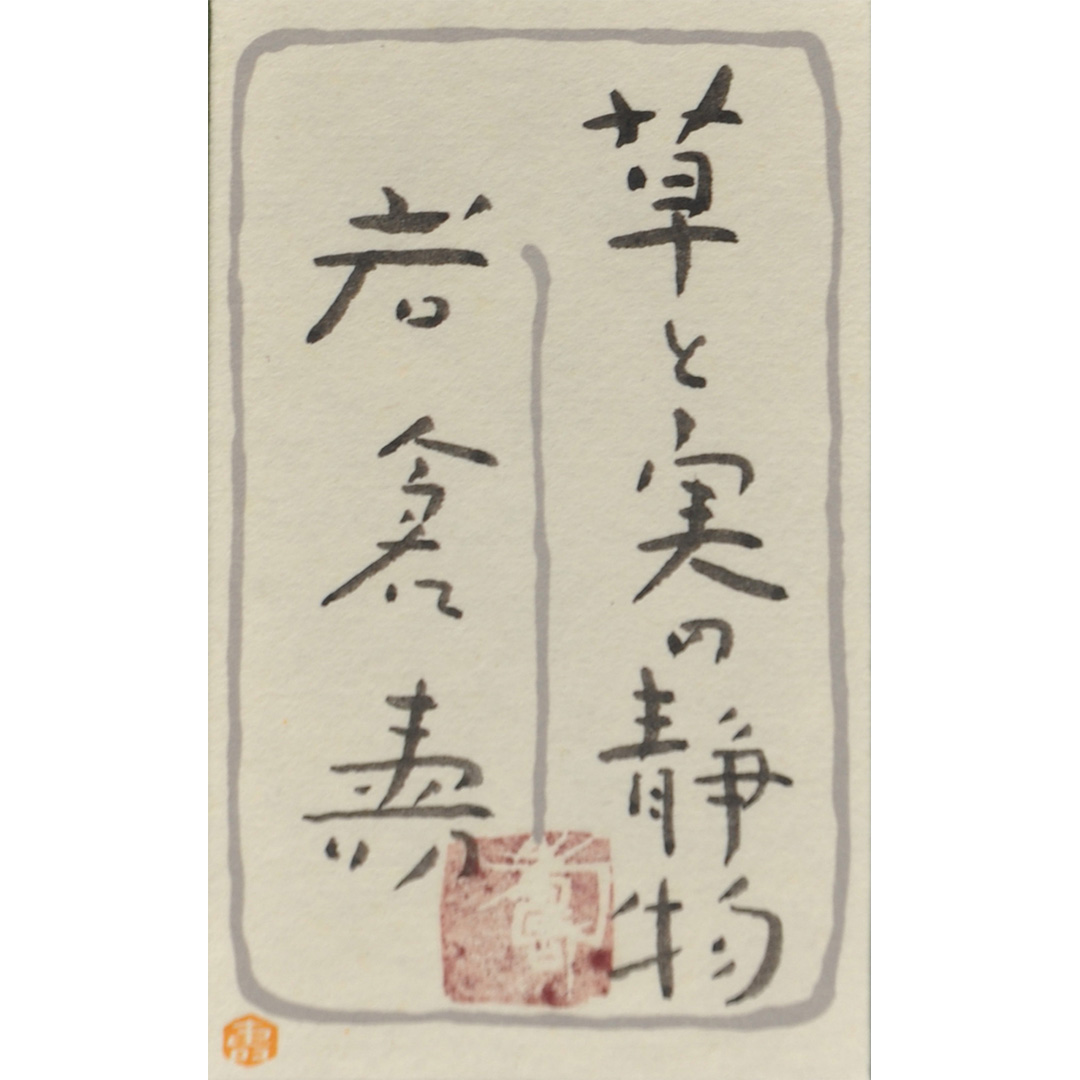 草と実の靜物
岩倉壽